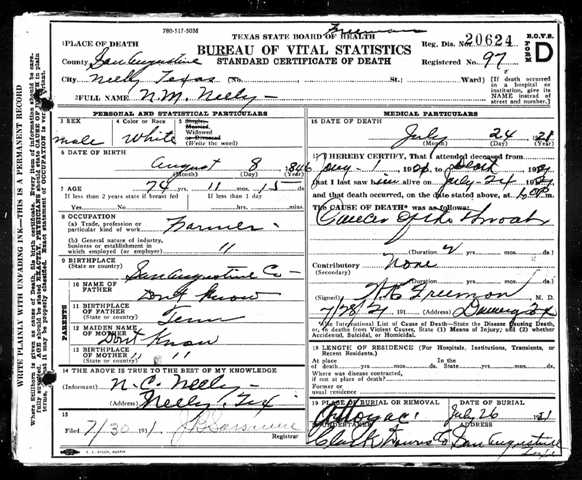 780-317-50M
TEXAS STATE BOARD OF HEALTH
BUREAU OF VITAL STATISTICS
STANDARD CERTIFICATE OF DEATH
Reg. Dis. No. 20624
Registered No. 97
B.O.V.S.
FORM
D
1 PLACE OF DEATH
County San Augustine
City Neely Texas (No. St. Ward)
(If death occurred in a hospital or institution, give its NAME instead of street and number.)
2 FULL NAME N.M. Neely
PERSONAL AND STATISTICAL PARTICULARS
3 SEX
male
4 Color or Race
White
5 Single, Married, Widowed or Divorced (Write the word)
6 DATE OF BIRTH
August 8 1846
(Month) (Day) (Year)
7 AGE
74 yrs. 11 mos. 15 ds.
If less than 2 years state if breast fed
Yes No
If less than 1 day
hrs. min.
8 OCCUPATION
(a) Trade, profession or particular kind of work Farmer
(b) General nature of industry, business or establishment in which employed (or employer) "
9 BIRTHPLACE
(State or country) San Augustine Co
PARENTS
10 NAME OF FATHER Dont Know
11 BIRTHPLACE OF FATHER
(State or country) Tenn
12 MAIDEN NAME OF MOTHER Dont Know
13 BIRTHPLACE OF MOTHER
(State or country) " "
14 THE ABOVE IS TRUE TO THE BEST OF MY KNOWLEDGE
(Informant) N.C. Neely
(Address) Neely, Tex
15
Filed 7/30 191
Registrar
MEDICAL PARTICULARS
16 DATE OF DEATH
July 24 1921
(Month) (Day) (Year)
17 I HEREBY CERTIFY, That I attended deceased from
that I last saw him alive on July 24
and that death occurred, on the date stated above, at
The CAUSE OF DEATH* was as follows:
Cancer of the Throat
(Duration 2 yrs. mos. ds.
Contributory None
(Secondary)
(Duration) yrs. mos. ds.
(Signed) Freemon, M. D.
7/28/21 191 (Address) Tex
*Use International List of Cause of Death—State the Disease Causing Death, or, in deaths from Violent Causes, State (1) Means of Injury; and (2) whether Accidental, Suicidal, or Homicidal.
18 LENGTH OF RESIDENCE (For Hospitals, Institutions, Transients, or Recent Residents.)
At place of death yrs. mos. ds.
In the State yrs. mos. ds.
Where was disease contracted, if not at place of death?
Former or usual residence
19 PLACE OF BURIAL OR REMOVAL
Attoyac
DATE OF BURIAL
July 26 1921
20 UNDERTAKER
Clark Downs Co
ADDRESS
San Augustine
WRITE PLAINLY WITH UNFADING INK—THIS IS A PERMANENT RECORD